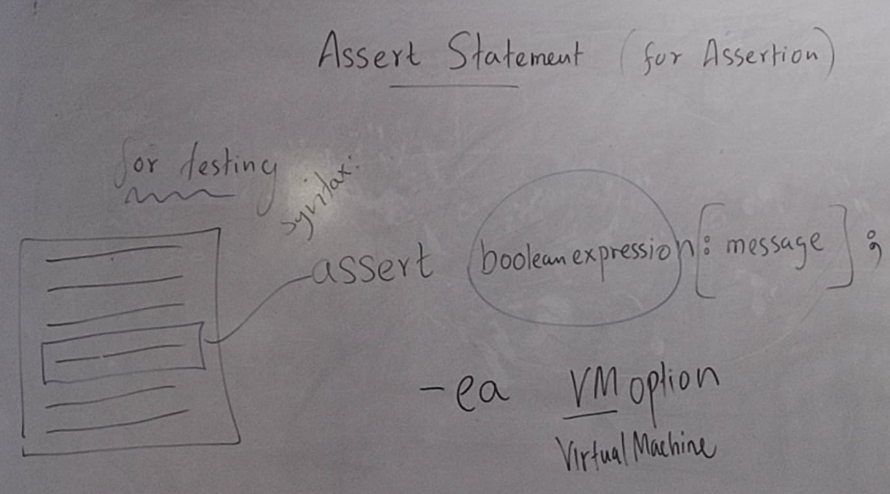 Assert Statement (for Assertion)
for testing
syntax:
assert boolean expression [: message] ;
-ea VM option
Virtual Machine